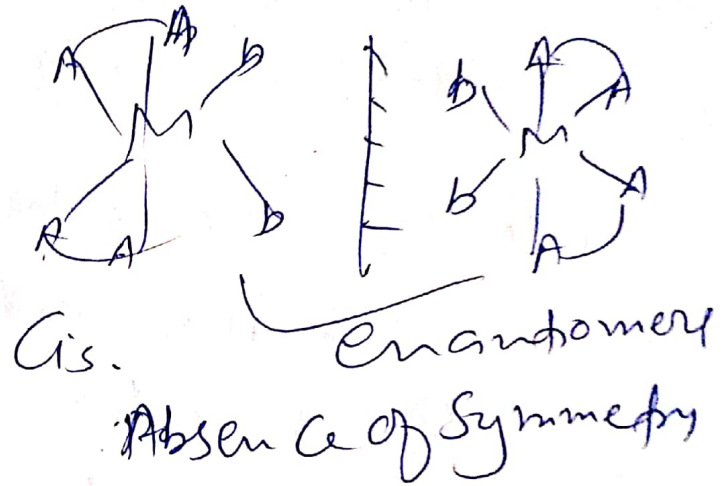 A A b
M
A A b
b A A
M
b A A
Cis. enantiomers
Absence of Symmetry